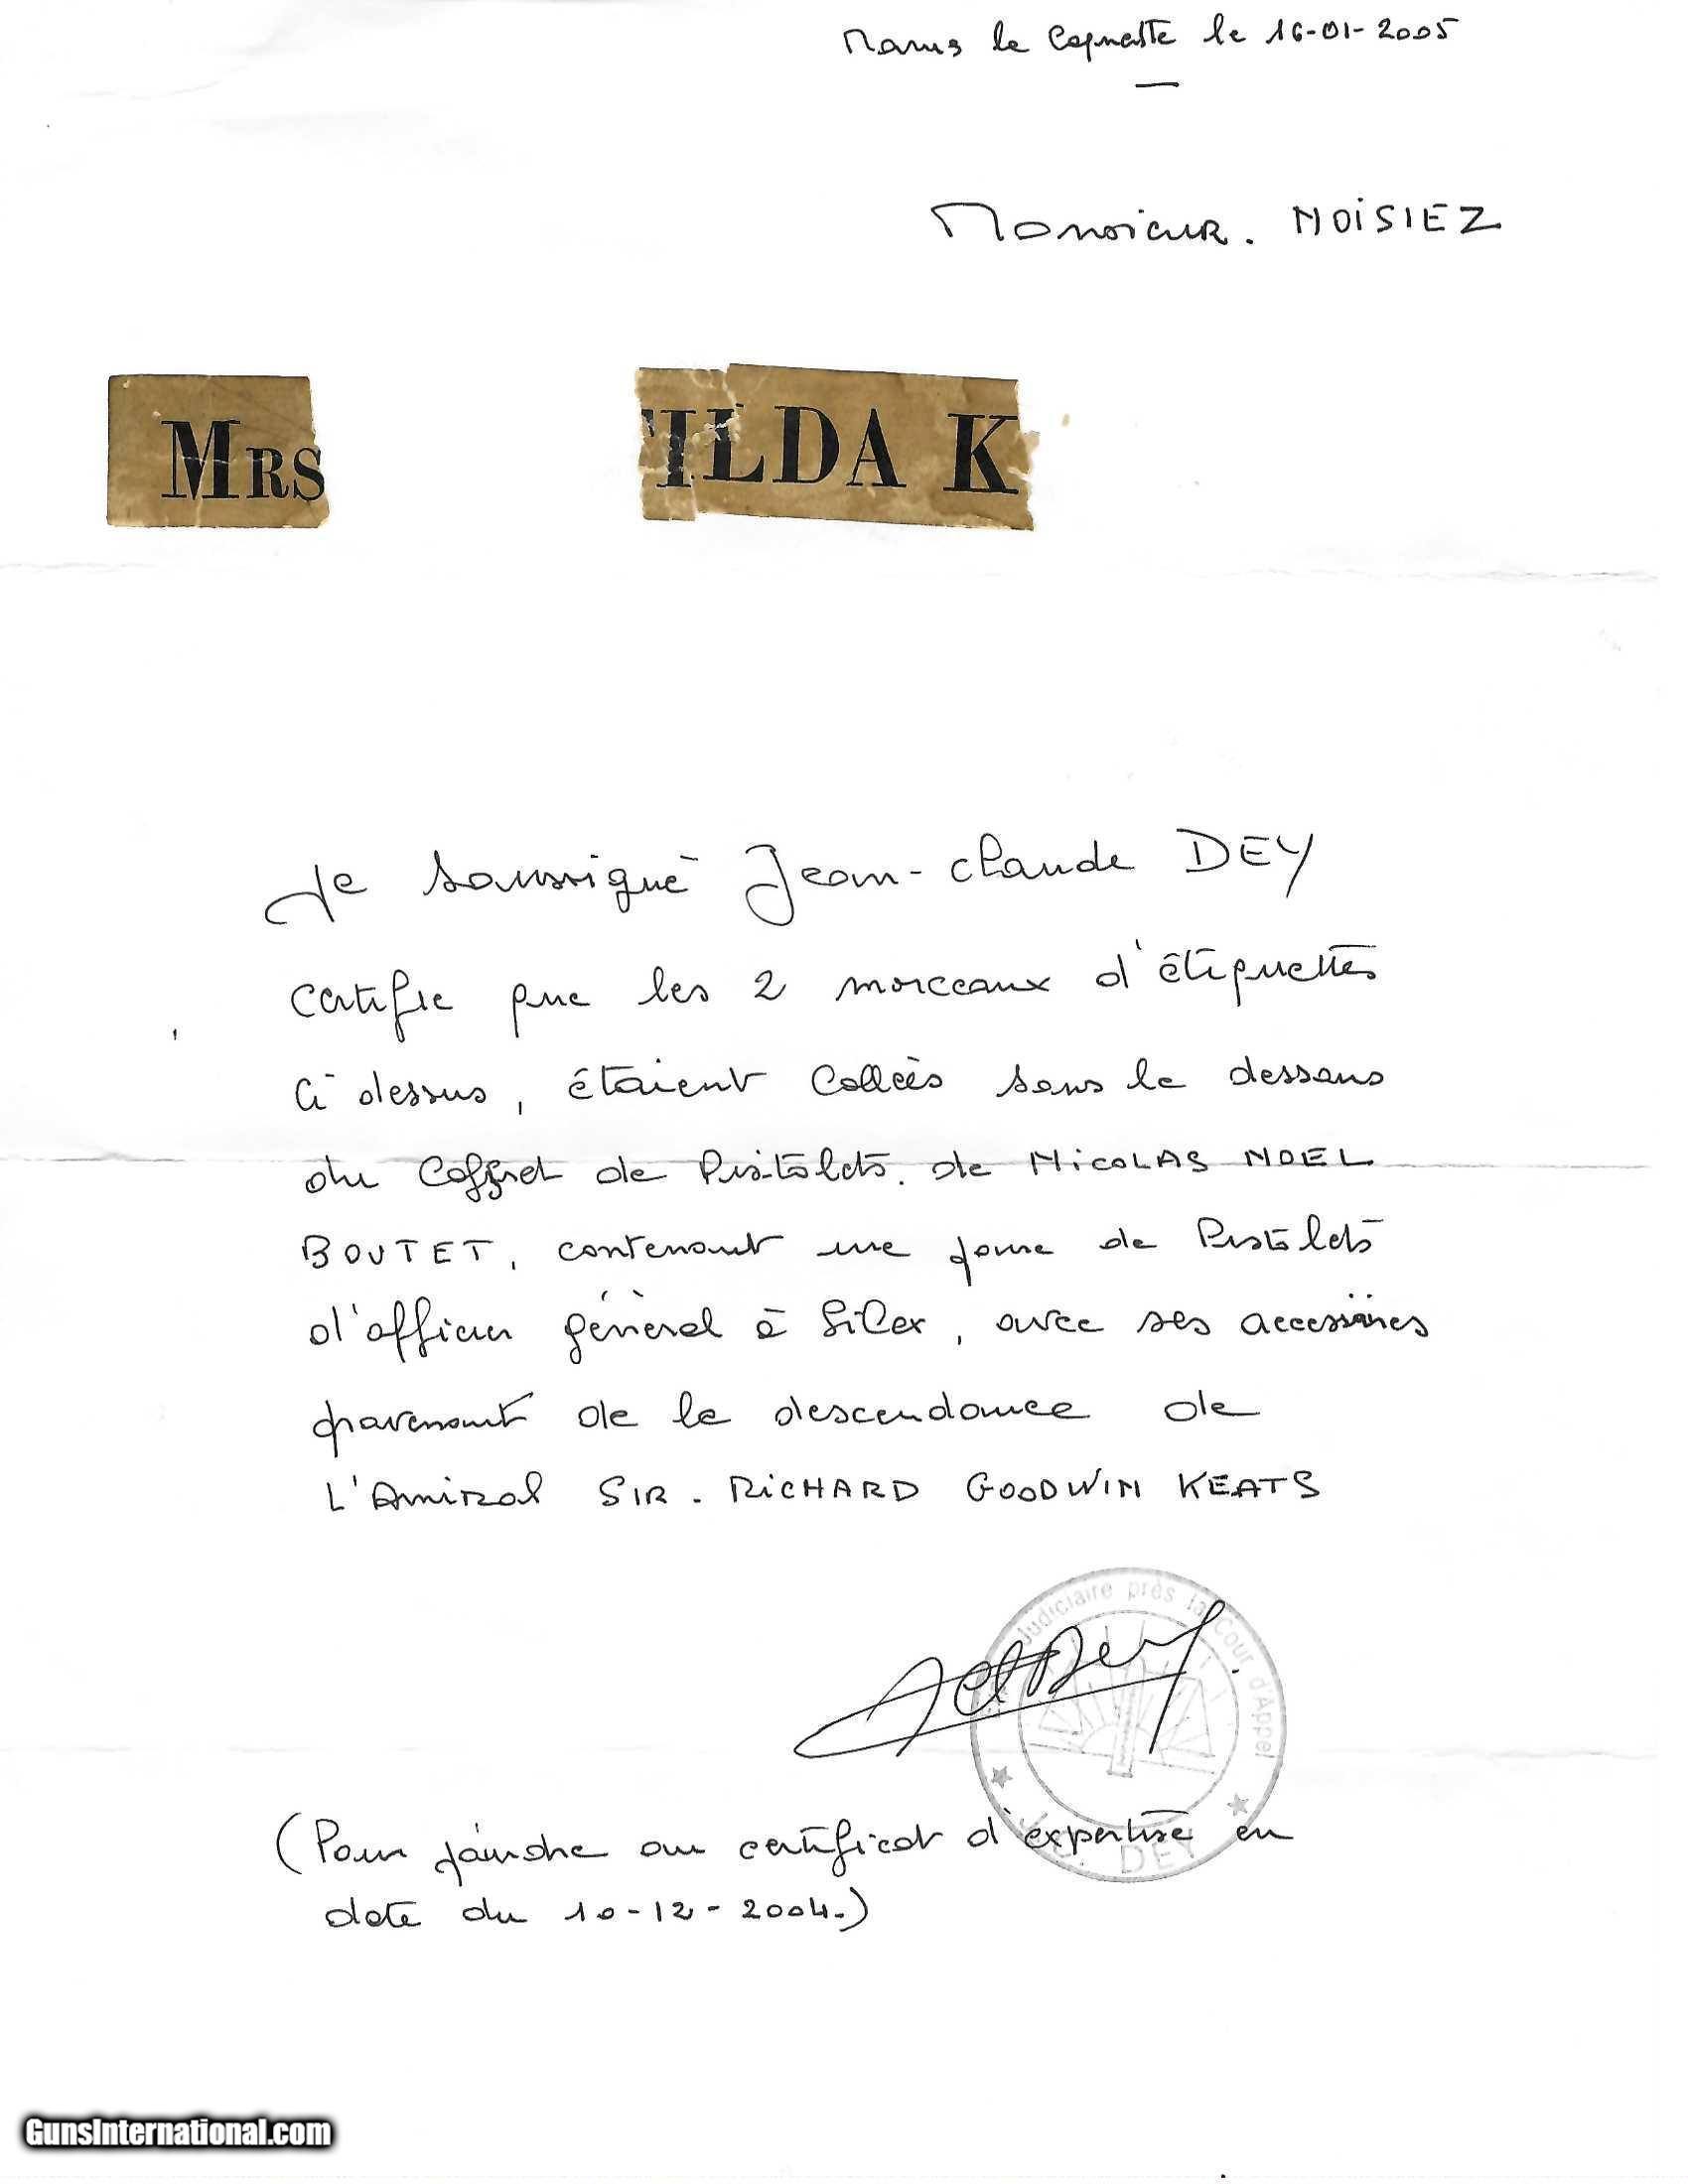 Marnes la Coquette le 16-01-2005
Monsieur. NOISIEZ
MRS TILDA K
Je soussigné Jean-Claude DEY
certifie que les 2 morceaux d'étiquettes
Ci dessus, étaient Collées sous le dessous
du Coffret de Pistolets. de NICOLAS NOEL
BOUTET, contenant une paire de Pistolets
d'officier général à Silex, avec ses accessoires
provenant de la descendance de
L'Amiral SIR. RICHARD GOODWIN KEATS
Judiciaire près la Cour d'Appel
JCDey.
J.C. DEY
(Pour joindre au certificat d'expertise en
date du 10-12-2004.)
GunsInternational.com